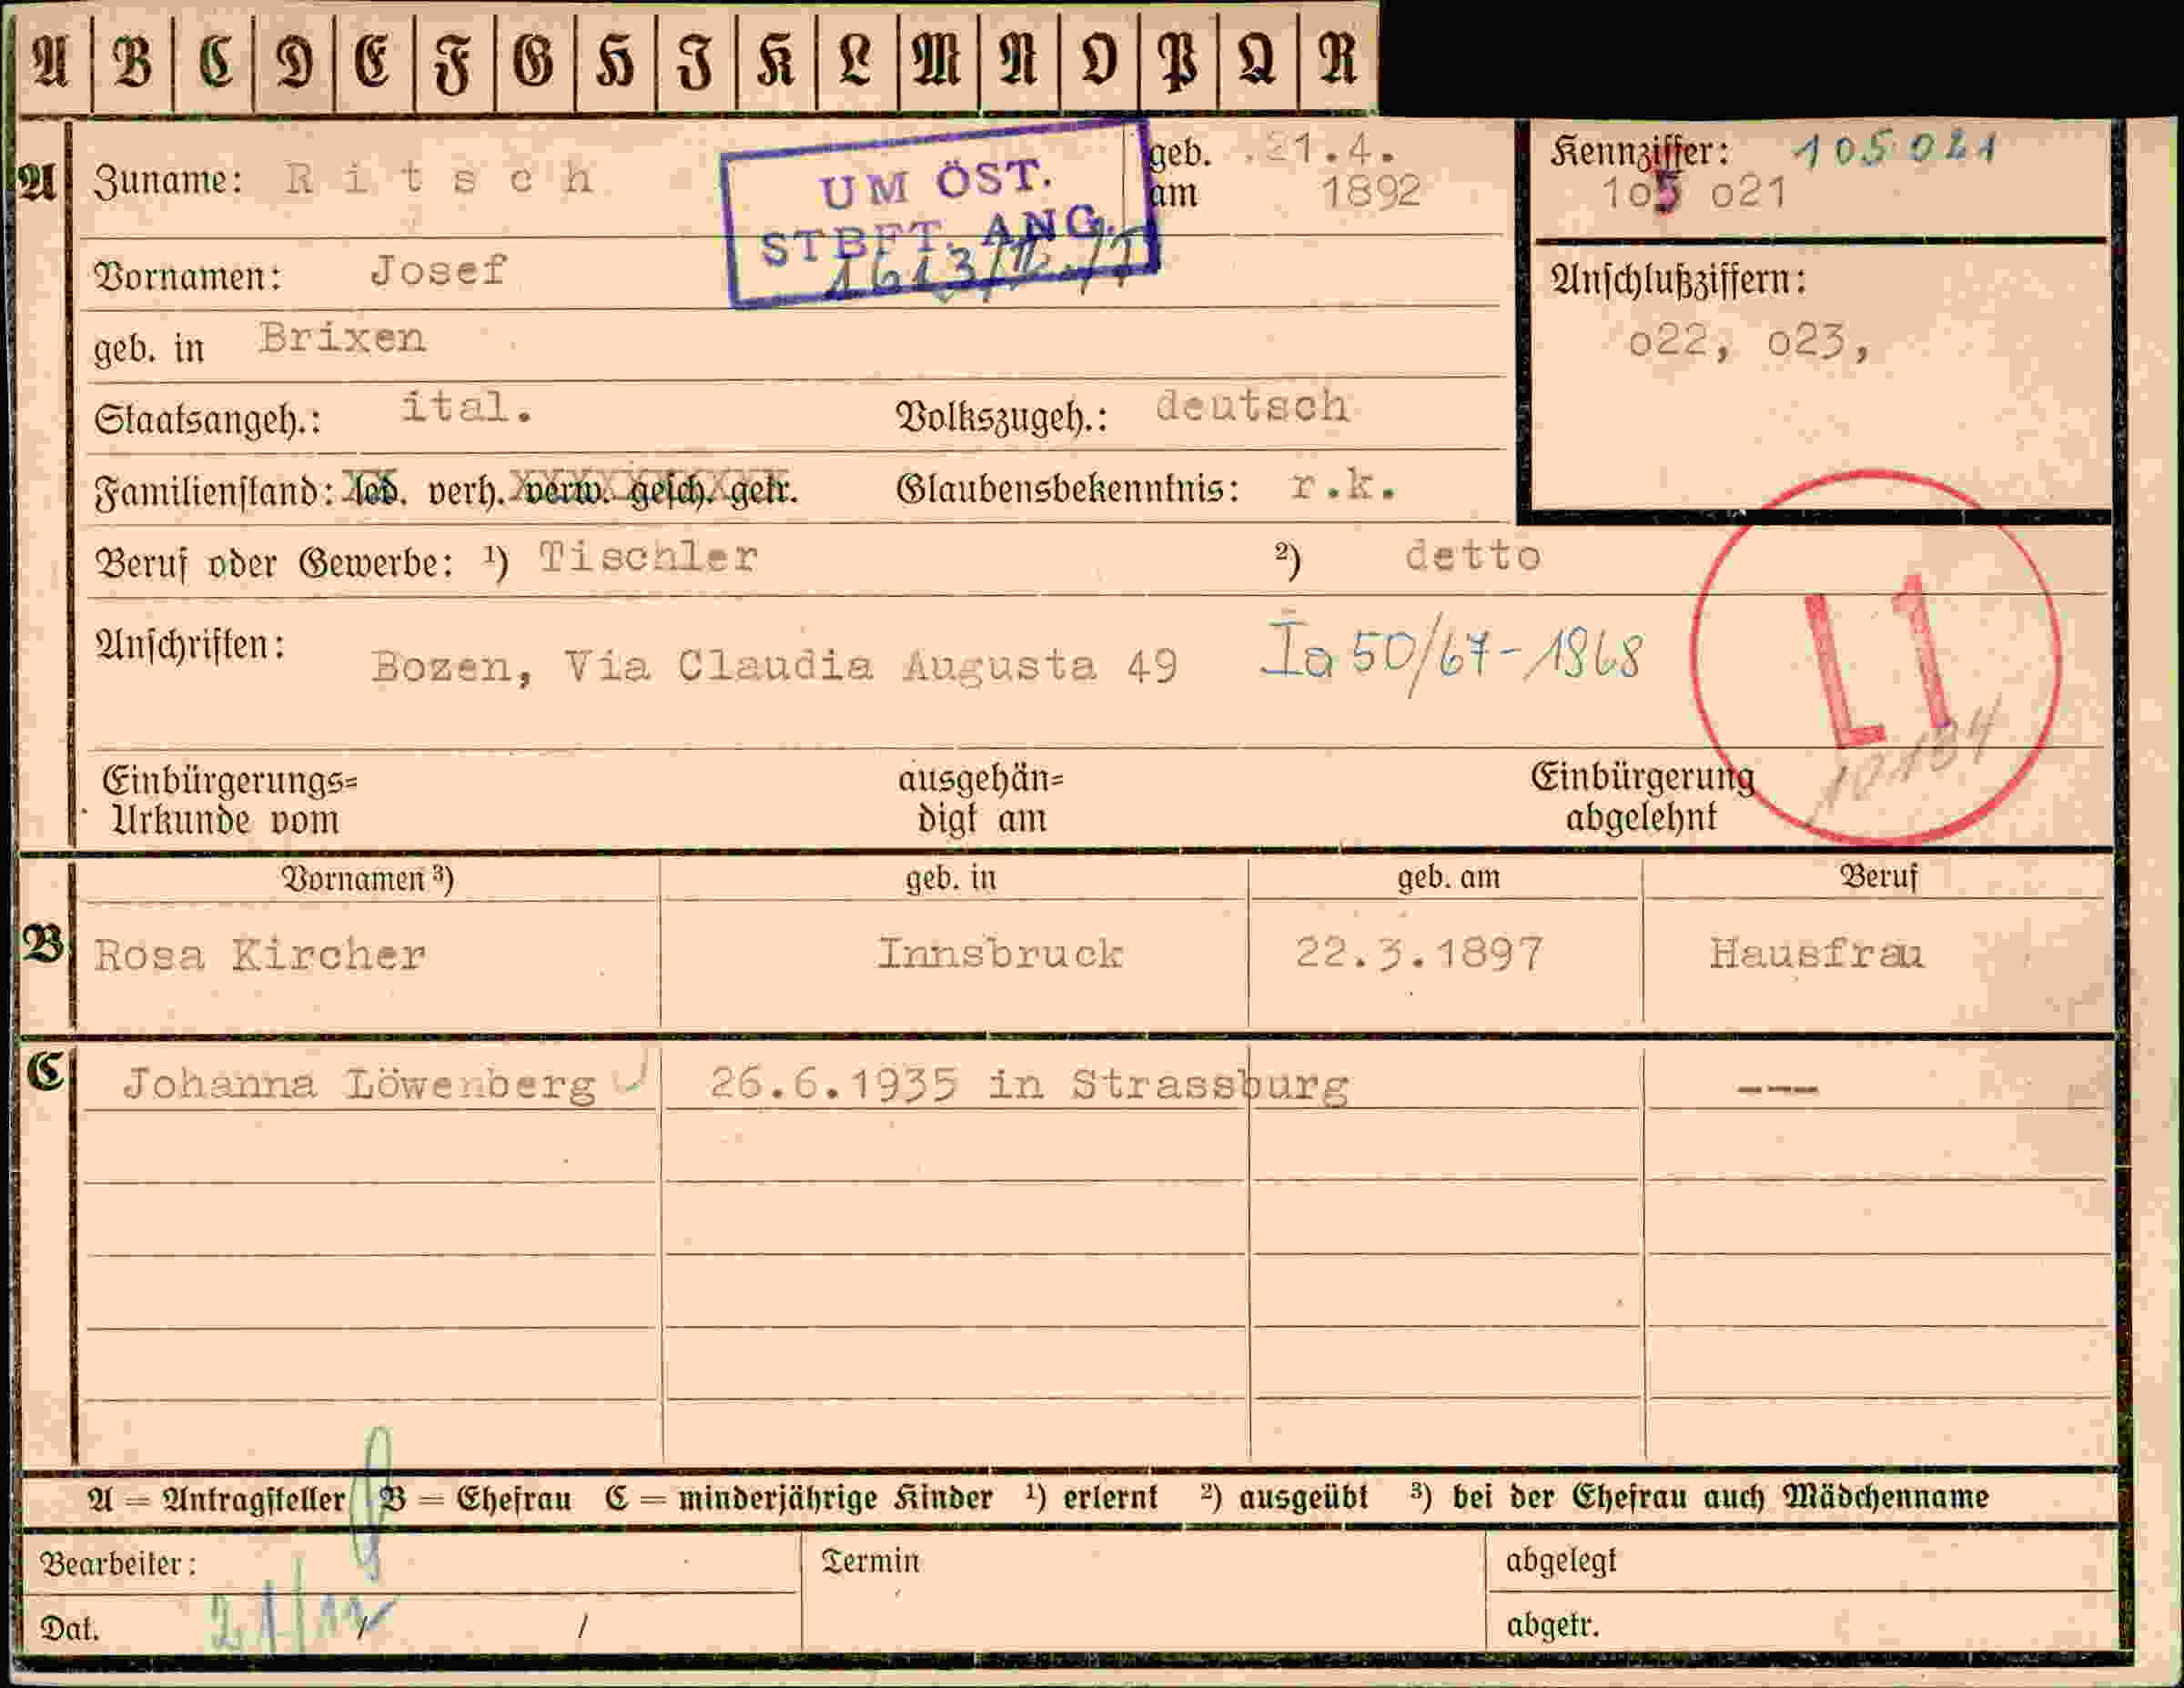 A B C D E F G H I K L M N O P Q R
A Zuname: Ritsch
UM ÖST.
STBFT. ANG.
geb. am 21.4. 1892
Kennziffer: 105 021
105 021
Vornamen: Josef
Anschlußziffern:
o22, o23,
geb. in Brixen
Staatsangeh.: ital. Volkszugeh.: deutsch
Familienstand: led. verh. verw. gesch. getr. Glaubensbekenntnis: r.k.
Beruf oder Gewerbe: ¹) Tischler ²) detto
Anschriften: Bozen, Via Claudia Augusta 49 Ia 50/67-1968
L1
Einbürgerungs= ausgehän= Einbürgerung
Urkunde vom digt am abgelehnt
Vornamen ³) geb. in geb. am Beruf
B Rosa Kircher Innsbruck 22.3.1897 Hausfrau
C Johanna Löwenberg 26.6.1935 in Strassburg ---
A = Antragsteller B = Ehefrau C = minderjährige Kinder ¹) erlernt ²) ausgeübt ³) bei der Ehefrau auch Mädchenname
Bearbeiter: Termin abgelegt
Dat. / abgetr.